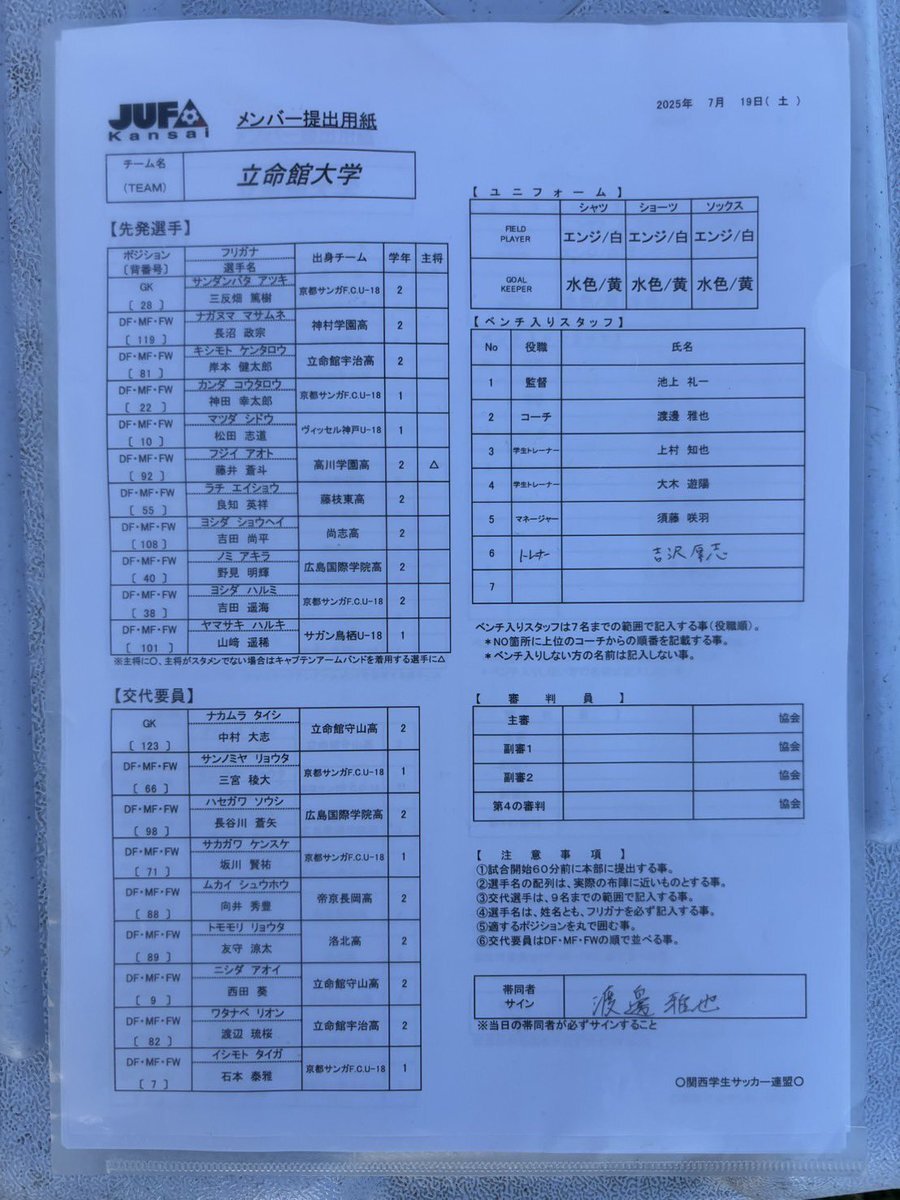 JUFA
Kansai
メンバー提出用紙
2025年 7月 19日( 土 )
チーム名
(TEAM)
立命館大学
【先発選手】
ポジション
〔背番号〕
フリガナ
選手名
出身チーム 学年 主将
GK
〔 28 〕
サンダンバタ アツキ
三反畑 篤樹
京都サンガF.C.U-18 2
DF・MF・FW
〔 119 〕
ナガヌマ マサムネ
長沼 政宗
神村学園高 2
DF・MF・FW
〔 81 〕
キシモト ケンタロウ
岸本 健太郎
立命館宇治高 2
DF・MF・FW
〔 22 〕
カンダ コウタロウ
神田 幸太郎
京都サンガF.C.U-18 1
DF・MF・FW
〔 10 〕
マツダ シドウ
松田 志道
ヴィッセル神戸U-18 1
DF・MF・FW
〔 92 〕
フジイ アオト
藤井 蒼斗
高川学園高 2 △
DF・MF・FW
〔 55 〕
ラチ エイショウ
良知 英祥
藤枝東高 2
DF・MF・FW
〔 108 〕
ヨシダ ショウヘイ
吉田 尚平
尚志高 2
DF・MF・FW
〔 40 〕
ノミ アキラ
野見 明輝
広島国際学院高 2
DF・MF・FW
〔 38 〕
ヨシダ ハルミ
吉田 遥海
京都サンガF.C.U-18 2
DF・MF・FW
〔 101 〕
ヤマサキ ハルキ
山﨑 遥稀
サガン鳥栖U-18 1
※主将に〇、主将がスタメンでない場合はキャプテンアームバンドを着用する選手に△
【交代要員】
GK
〔 123 〕
ナカムラ タイシ
中村 大志
立命館守山高 2
DF・MF・FW
〔 66 〕
サンノミヤ リョウタ
三宮 稜大
京都サンガF.C.U-18 1
DF・MF・FW
〔 98 〕
ハセガワ ソウシ
長谷川 蒼矢
広島国際学院高 2
DF・MF・FW
〔 71 〕
サカガワ ケンスケ
坂川 賢祐
京都サンガF.C.U-18 1
DF・MF・FW
〔 88 〕
ムカイ シュウホウ
向井 秀豊
帝京長岡高 2
DF・MF・FW
〔 89 〕
トモモリ リョウタ
友守 涼太
洛北高 2
DF・MF・FW
〔 9 〕
ニシダ アオイ
西田 葵
立命館守山高 2
DF・MF・FW
〔 82 〕
ワタナベ リオン
渡辺 琉桜
立命館宇治高 2
DF・MF・FW
〔 7 〕
イシモト タイガ
石本 泰雅
京都サンガF.C.U-18 1
【 ユ ニ フ ォ ー ム 】
シャツ ショーツ ソックス
FIELD
PLAYER
エンジ/白 エンジ/白 エンジ/白
GOAL
KEEPER
水色/黄 水色/黄 水色/黄
【ベンチ入りスタッフ】
No 役職 氏名
1 監督 池上 礼一
2 コーチ 渡邊 雅也
3 学生トレーナー 上村 知也
4 学生トレーナー 大木 遊陽
5 マネージャー 須藤 咲羽
6 トレーナー 吉沢 厚志
7
ベンチ入りスタッフは7名までの範囲で記入する事(役職順)。
*NO箇所に上位のコーチからの順番を記載する事。
*ベンチ入りしない方の名前は記入しない事。
【 審 判 員 】
主審 協会
副審1 協会
副審2 協会
第4の審判 協会
【 注 意 事 項 】
①試合開始60分前に本部に提出する事。
②選手名の配列は、実際の布陣に近いものとする事。
③交代選手は、9名までの範囲で記入する事。
④選手名は、姓名とも、フリガナを必ず記入する事。
⑤適するポジションを丸で囲む事。
⑥交代要員はDF・MF・FWの順で並べる事。
帯同者
サイン
渡邊 雅也
※当日の帯同者が必ずサインすること
〇関西学生サッカー連盟〇